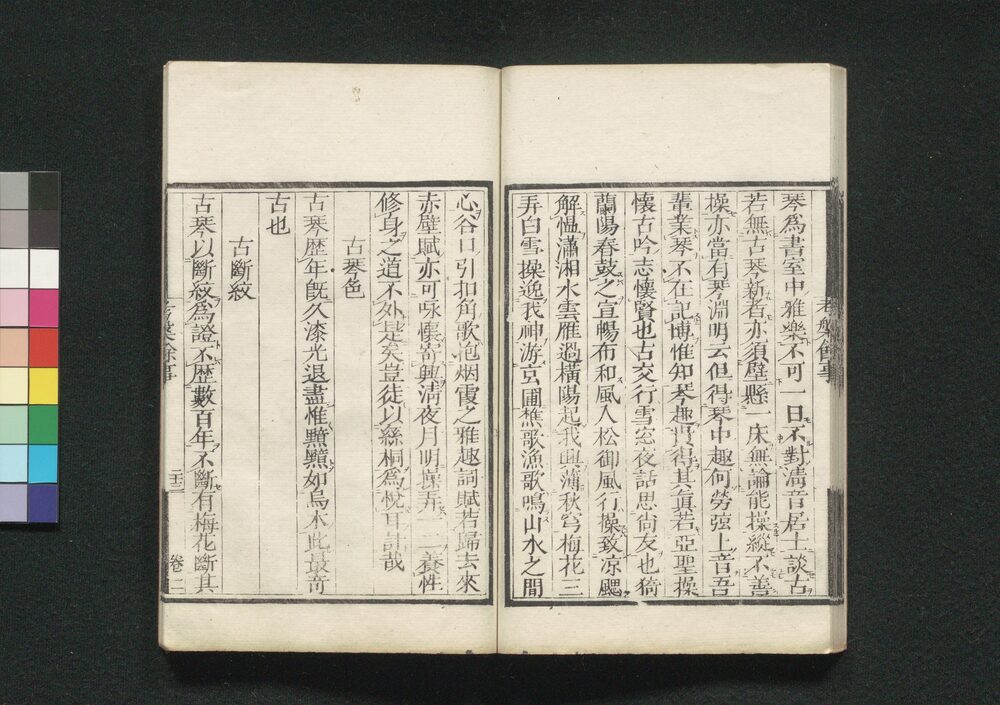 琴爲書室中雅樂不可一日不對淸音居士談古
若無古琴新者亦須壁懸一床無論能操縱不善
操亦當有琴淵明云但得琴中趣何勞強上音吾
輩業琴不在記博惟知琴趣貴得其眞若亞聖操
懷古吟志懷賢也古交行雪窓夜話思尙友也猗
蘭陽春鼓之宣暢布和風入松御風行操致凉颸
解慍瀟湘水雲雁過橫陽起我興薄秋穹梅花三
弄白雪操逸我神游玄圃樵歌漁歌鳴山水之間
心谷口引扣角歌抱烟霞之雅趣詞賦若歸去來
赤壁賦亦可咏懷寄興淸夜月明操弄一二養性
修身之道不外是矣豈徒以絲桐爲悅耳計哉
古琴色
古琴歴年既久漆光退盡惟黯黯如烏木此最奇
古也
古斷紋
古琴以斷紋爲證不歴數百年不斷有梅花斷其
考槃餘事
卷二